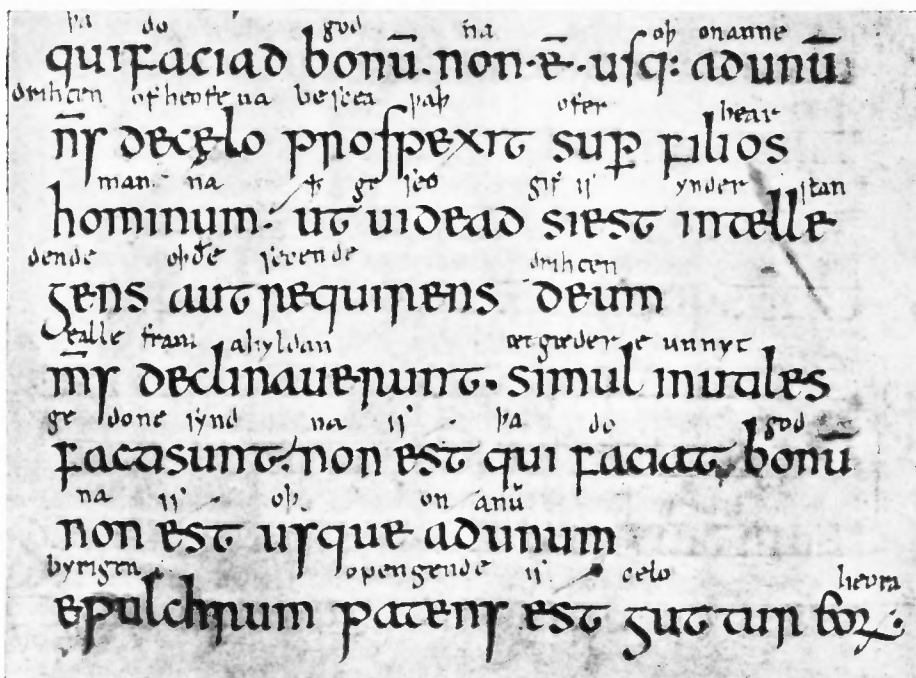 þa do god na oþ on anne
qui faciad bonū. non. ē. usq: ad unū
drihten of heofe na be scea ƿaþ ofer bear
n̄s de celo prospexit sup̄ filios
man na ꝥ ge seo gif is ynder stan
hominum. ut uidead si est intelle
dende oþðe secende drihten
gens aut requirens deum
ealle fram ahyldan æt gæder e unnyt
m̄s declinauerunt. simul inutiles
ge done synd na is þa do god
facti sunt. non est qui faciat bonū
na is oþ on anū
non est usque ad unum
byrigen opengende is celo heora
epulchrum patens est guttur eorꝝ.